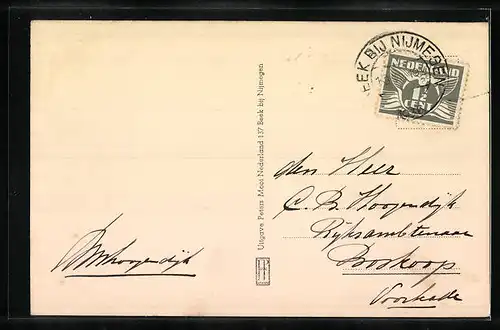 BEEK BIJ NIJMEGEN
NEDERLAND
1½
CENT
Uitgave Pension Mooi Nederland 137 Beek bij Nijmegen
den Heer
C. B. Hoogendijk
Rijksambtenaar
Boskoop
Voorkade
Hoogendijk